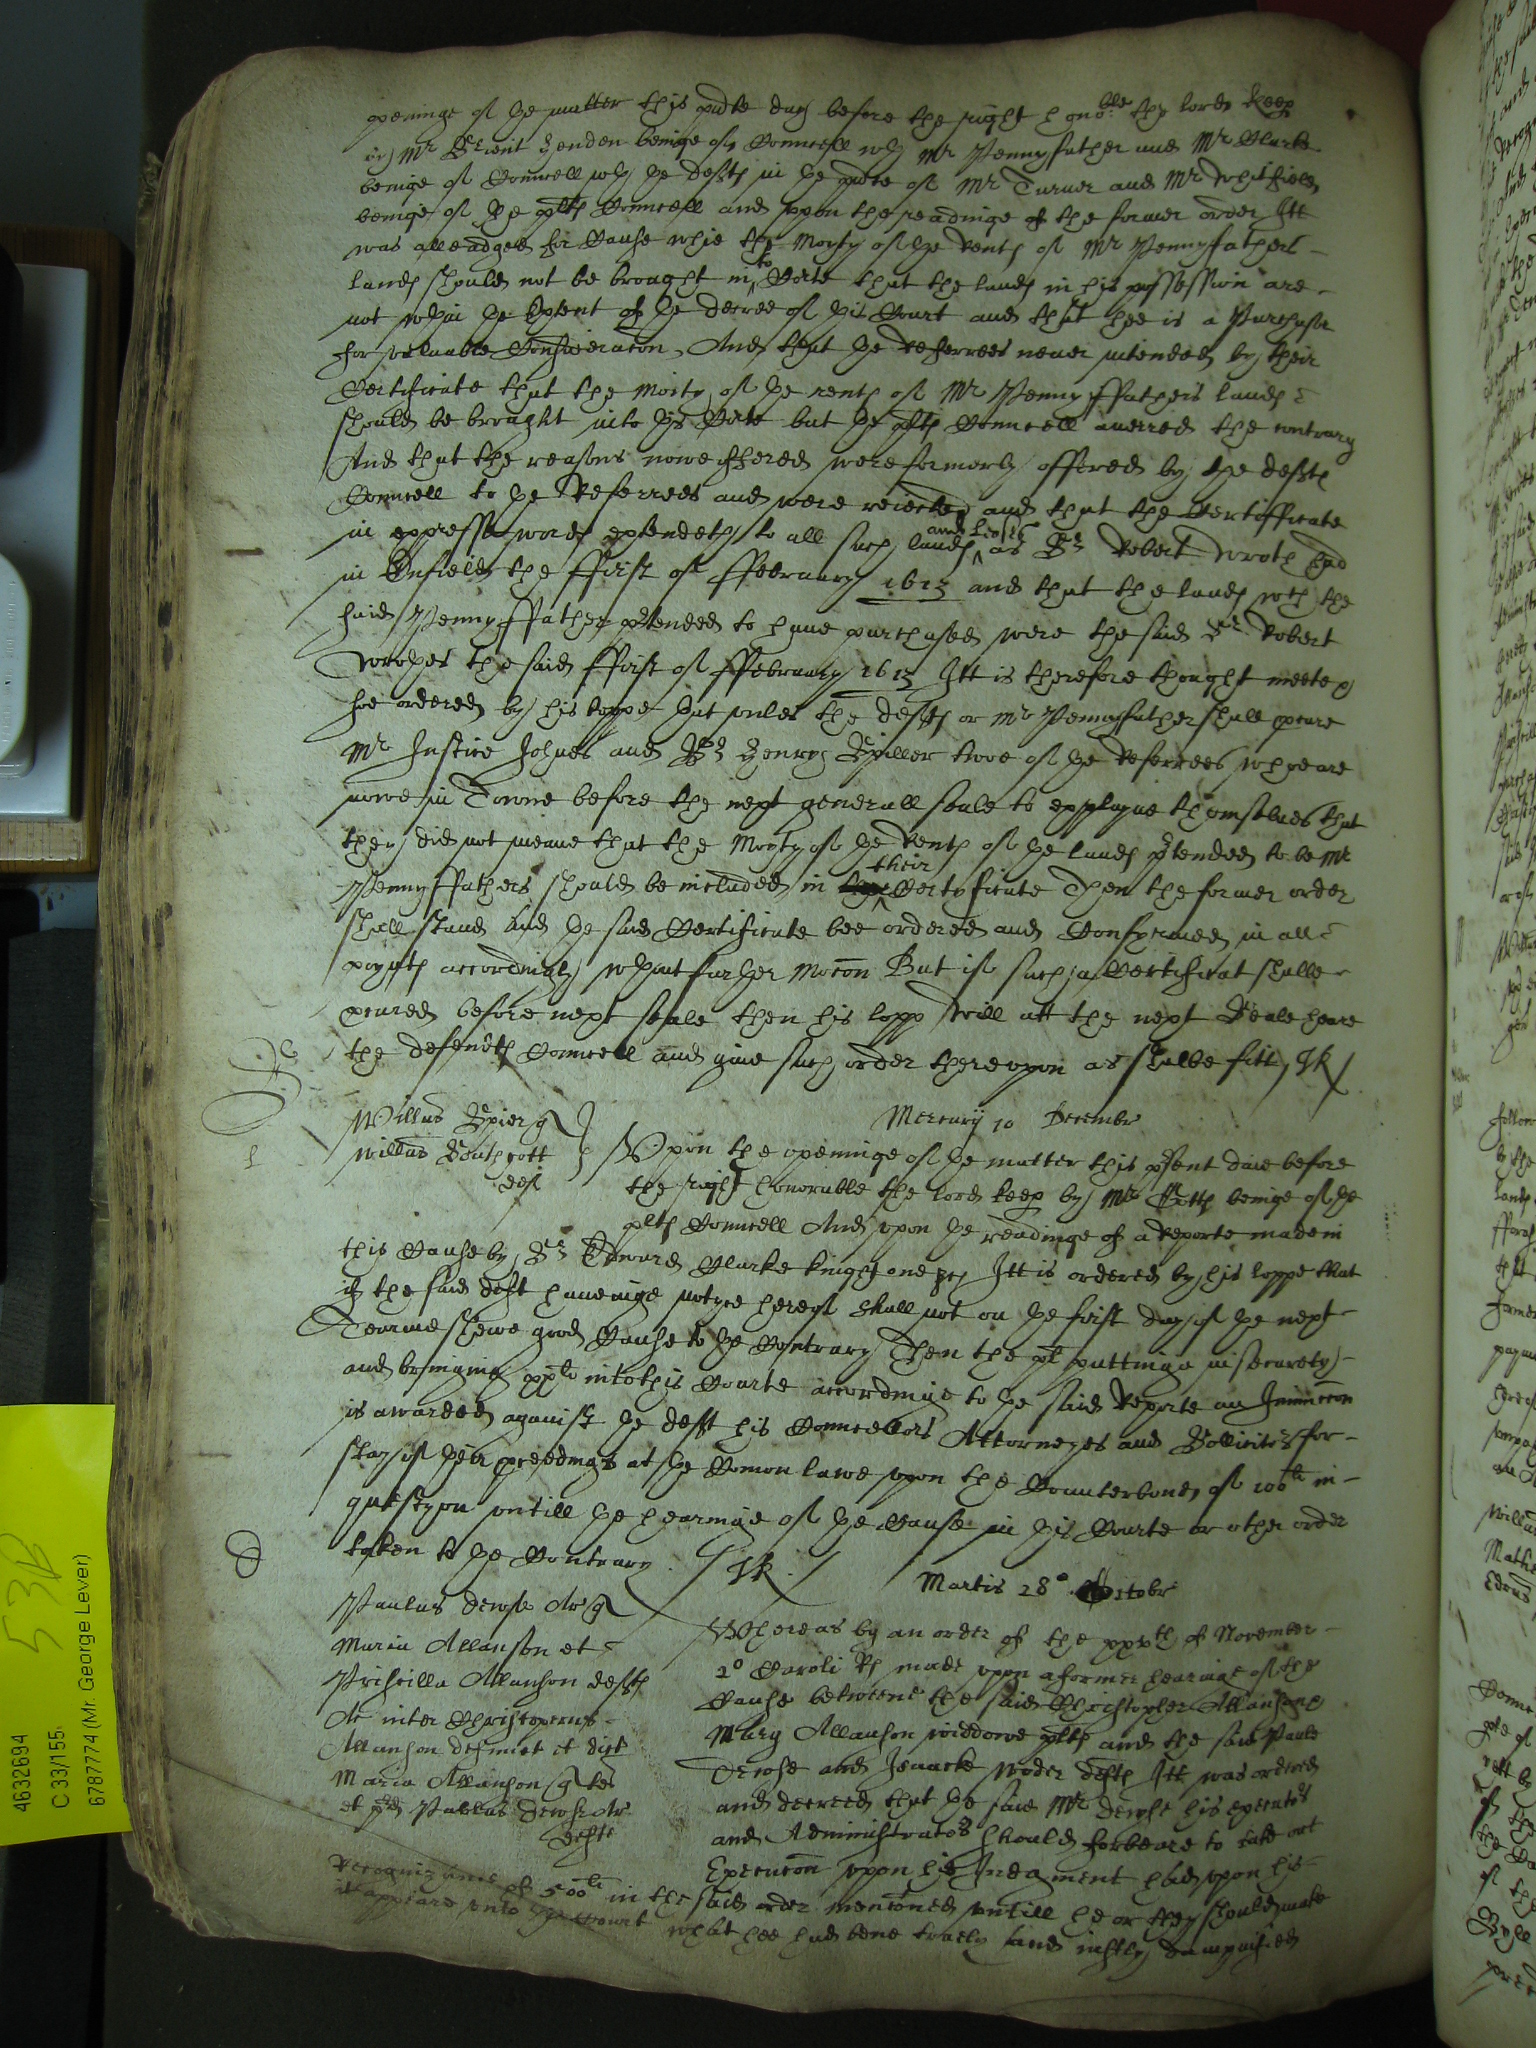 openinge of ye matter this pnte day before the right hono:ble the lord Keep
by Mr Serient Henden beinge of Councell wth Mr Pennyfather and Mr Clarke
beinge of Councell wth ye defts in ye pnce of Mr Turner and Mr Whitfield
beinge of ye plts Councell and vpon the readinge of the former order Itt
was alleadged for Cause whie the Moyty of ye Rents of Mr Pennyfathers
lands should not be brought into Corte that the lands in his possession are
not wthin ye Extent of ye decree of this Court and that hee is a Purchaser
for valuable Consideracon And that ye Referrees neuer intended by their
Certificate that the Moity of ye rents of Mr Pennyffathers lands
should be brought into this Corte but ye plts Councell averred the contrary
And that the reasons nowe offered were formerly offered by the defts
Councell to ye Referrees and were reiected and that the Certifficate
in expresse words extendeth to all such lands and leases as Sr Robert Wroth had
in Enfield the ffirst of ffebruary 1613 and that the lands wch the
said Pennyffather ptended to haue purchased were the said Sr Robert
Wrothes the said ffirst of ffebruary 1613 Itt is therefore thought meete &
soe ordered by his lopp yat vnles the defts or Mr Pennyfather shall pcure
Mr Justice Johnes and Sr Henry Spiller twoe of ye Referrees who are
nowe in Towne before the next generall seale to explayne themselues that
they did not meane that the Moyty of ye Rents of ye lands ptended to be Mr
Pennyffathers should be included in their Certyficate Then the former order
shall stand And ye said Certificate bee ordered and Confirmed in all
poynts accordingly wthout further Mocon But if such a Certificat shalbe
pcured before next seale then his lopp will att the next Seale heare
the defendts Councell and giue such order therevpon as shalbe fitt / JK /
Mercurij 10 Decembr
Willus Spier q
Willus Southcott
deft
Vpon the openinge of ye matter this psent daie before
the right honorable the lord keep by Mr beinge of ye
plts Councell And vpon ye readinge of a Reporte made in
this Cause by Sr Edward Clarke knight one &c Itt is ordered by his lopp that
if the said deft haueinge notyce hereof shall not on ye first day of ye next
Tearme shewe good Cause to ye Contrary Then the plt puttinge in securety
and bringinge xxli into this Courte accordinge to ye said Reporte an Iniunccon
is awarded against ye deft his Councellors Attorneyes and Sollicitors for
stay of their pceedings at ye Comon lawe vpon the Counterbond of 100li in
question vntill ye hearinge of ye Cause in this Courte or other order
taken to ye Contrary / JK /
Martis 28o Octobr
Paulus Dewse Ar q
Maria Allanson et
Priscilla Allanson defts
Ac inter Christoperus
Allanson defunct et dict
Maria Allanson q tes
et pd Paulus Dewse Ar
defte
Whereas by an order of the xxxth of November
2o Caroli Rs made vpon a former hearinge of the
Cause betweene the said Christopher Allanson
Mary Allanson widdowe plts and the said Paule
Dewse and defts Itt was ordered
and decreed that ye said Mr Dewse his executors
and Administrators should forbeare to take out
Execucon vpon his Iudgment had vpon his
Recognizance of 500li in the said order menconed vntill he or they should make
it appeare vnto the Court what hee had bene truely and iustly dampnified
53B
4632694
C 33/155
6787774 (Mr. George Lever)